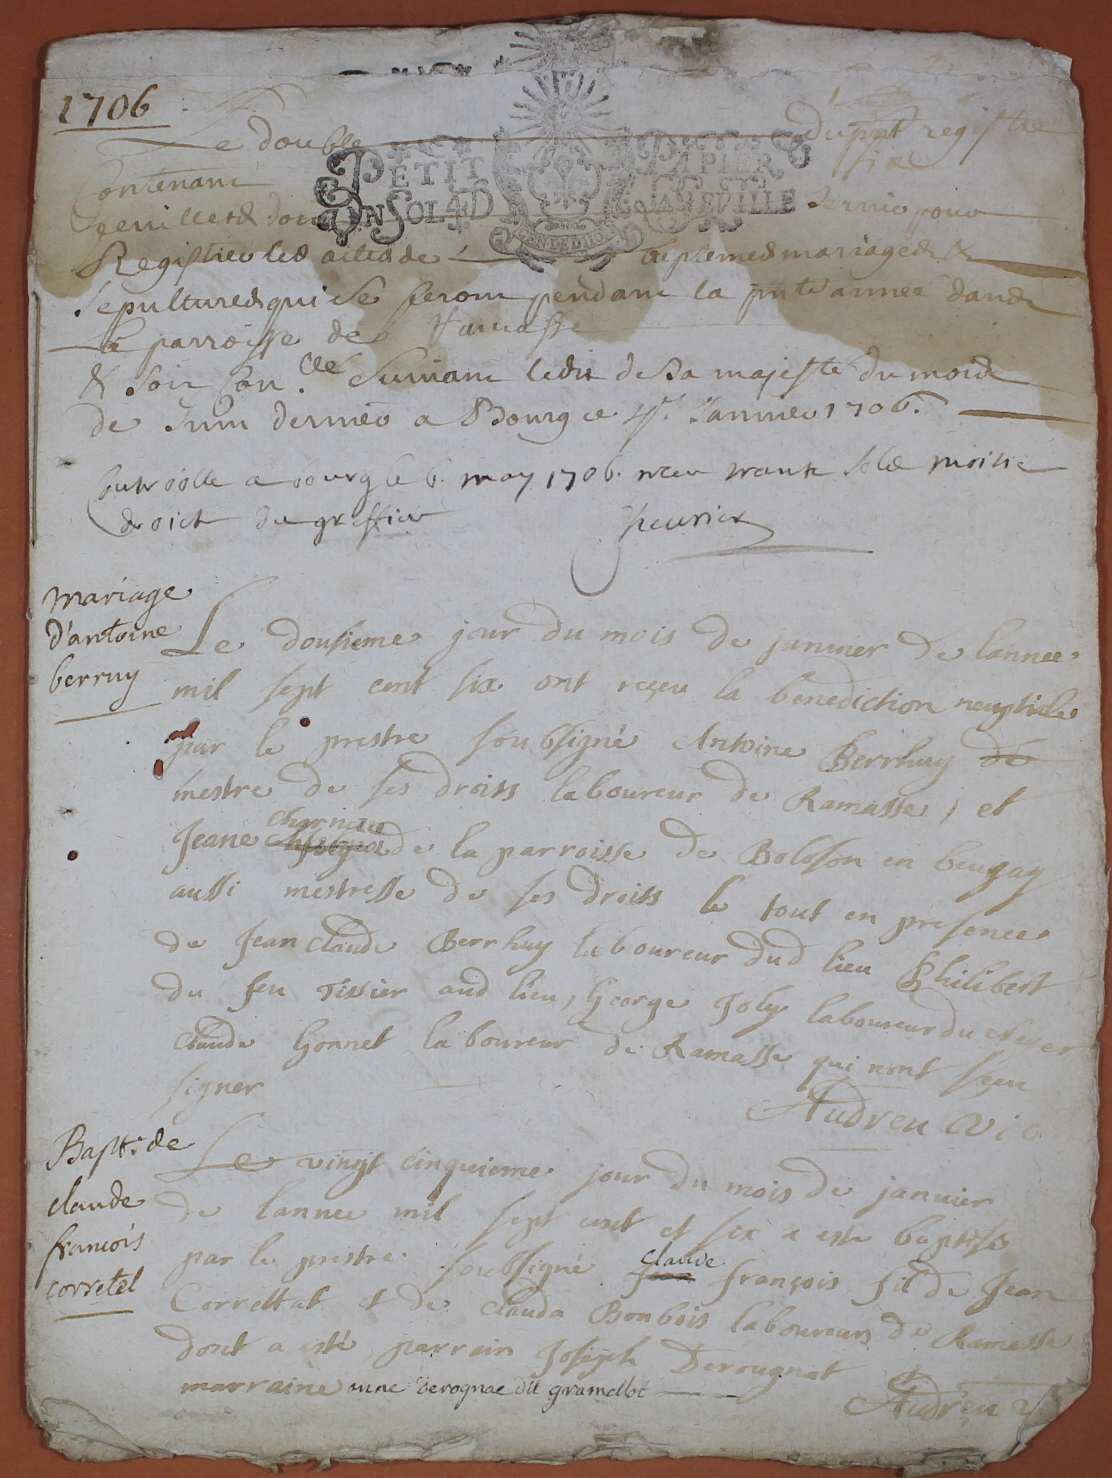 1706
Le double du pnt registre
Contenant six
feuillets dont servir pour
Registrer les actes de baptemes mariages &
sepultures qui se feront pendant la pnte année dans
la parroisse de Ramasse
& soit con.lle suivant ledit de Sa majesté du mois
de Juin dernier a Bourg ce Janvier 1706.
PETIT PAPIER
UN SOL 4 D LA FEUILLE
GEN DE DIION
Controolle a bourg le 6. may 1706. receu trante sols moitie
droict du greffier
mariage
d'antoine
berruy
Le dousieme jour du mois de janvier de lannee
mil sept cent six ont reçeu la benediction neuptiale
par le prestre soubsigné Antoine Berrhuy de
mestre de ses droits laboureur de Ramasse, et
Jeane de la parroisse de Boloson en beugay
aussi mestresse de ses droits le tout en presence
de Jean claude Berrhuy laboureur dud lieu Philibert
du feu Tissier aud lieu, George Joly laboureur du et
claude Gonnet laboureur de Ramasse qui nont sceu
signer
Audreu vic
Bapt. de
claude
francois
corretel
Le vingt cinquieme jour du mois de janvier
de lannee mil sept cent et six a este baptisé
par le prestre soubsigné claude françois fil de Jean
Correttet et de clauda Bonbois laboureurs de Ramasse
dont a esté parrain Joseph Derougnat et
marraine anne derognae dit gramellot
Audreu